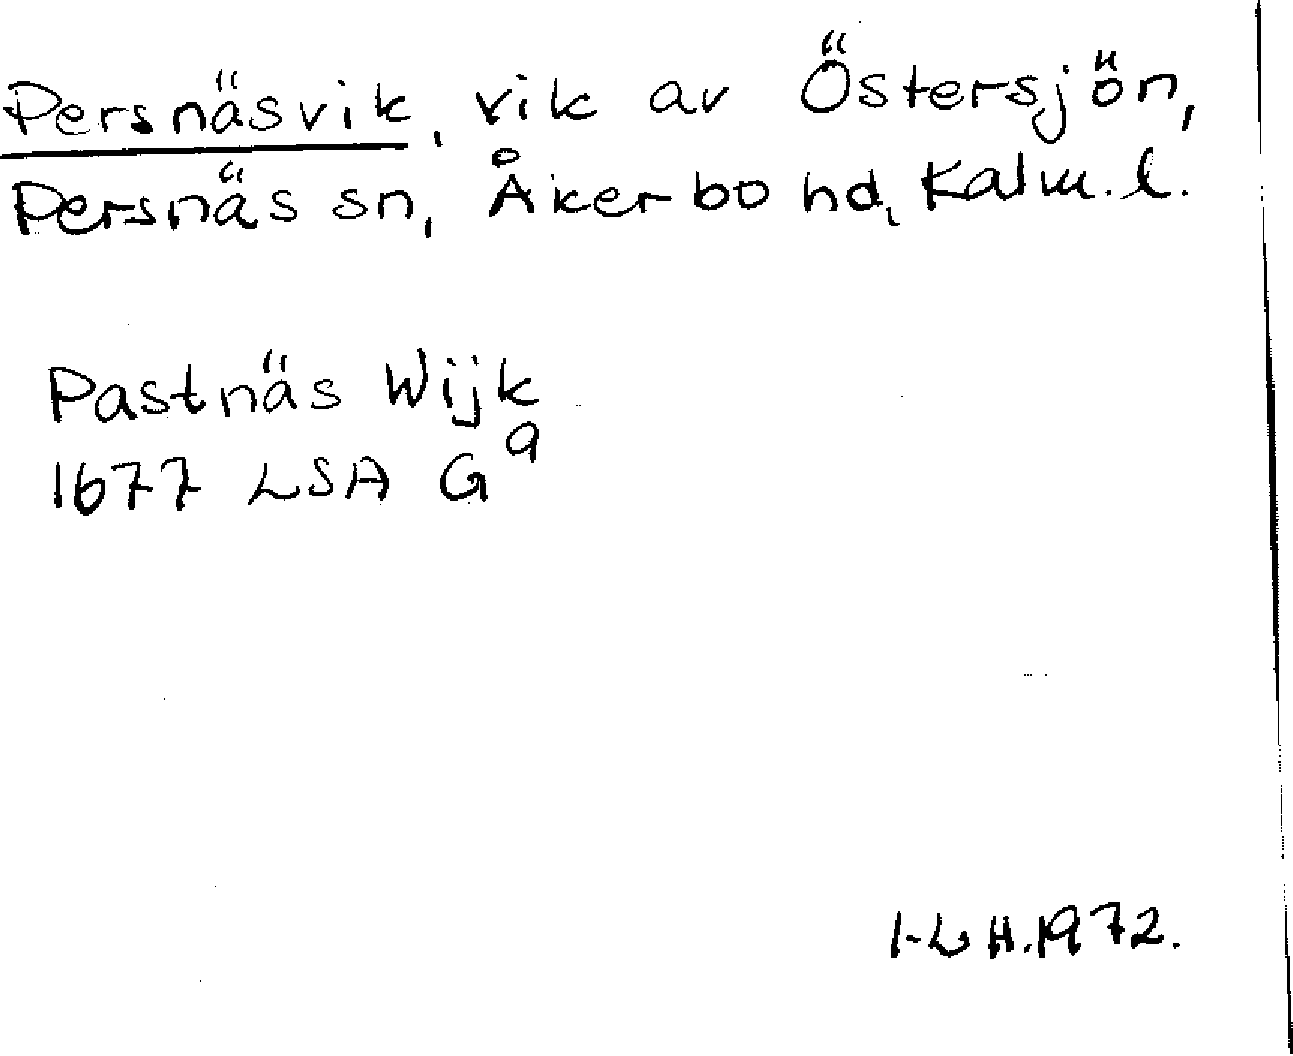 Persnäsvik, vik av Östersjön,
Persnäs sn, Åkerbo hd, Kalm. l.
Pastnäs Wijk
1677 LSA G⁹
I-L H. 1972.